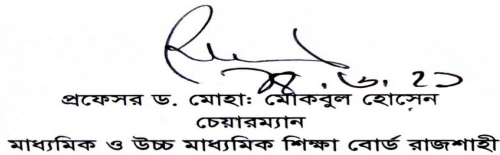 ২৪.৬.২১
প্রফেসর ড. মোহাঃ মোকবুল হোসেন
চেয়ারম্যান
মাধ্যমিক ও উচ্চ মাধ্যমিক শিক্ষা বোর্ড রাজশাহী